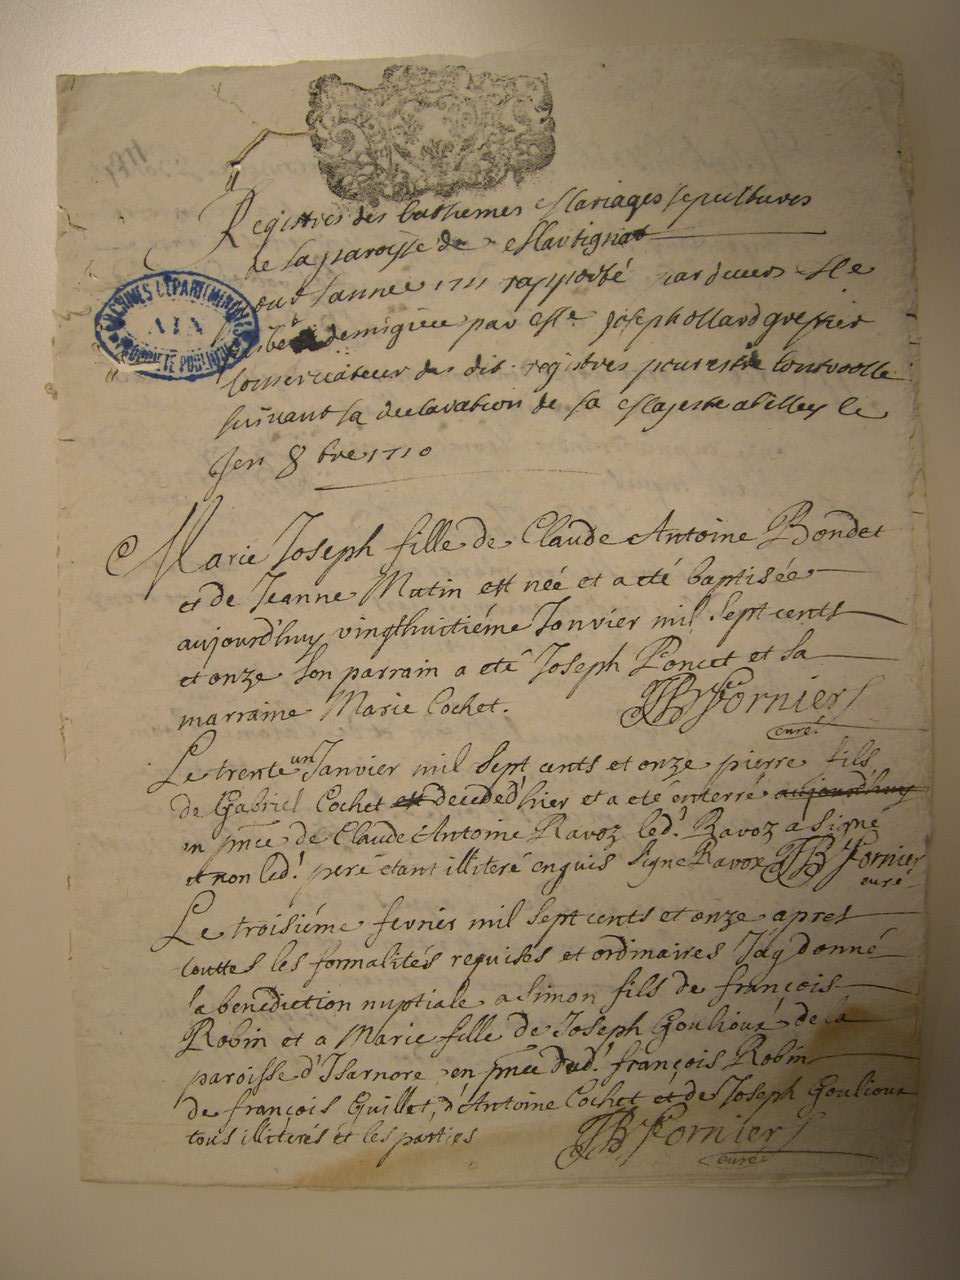 1171
Registres des bathemes Mariages sepultures
de la paroisse de Martignat
pour lannee 1711 rapporté par
par Me Joseph ollard greffier
Conservateur des dit registres pour estre
suivant la declaration de sa Majesté a belley le
Jen 8bre 1710
ARCHIVES DÉPARTEMENTALES
AIN
PROPRIÉTÉ PUBLIQUE
Marie Joseph fille de Claude Antoine Bondet
et de Jeanne Matin est née et a eté baptisée
aujourd'huy vingthuitiéme Janvier mil sept cents
et onze son parrain a eté Joseph Poncet et sa
marraine Marie Cochet. JB Fornier
curé
Le trente un Janvier mil sept cents et onze pierre fils
de Gabriel Cochet est decedé d'hier et a eté enterré aujourd'huy
en pnce de Claude Antoine Ravoz led! Ravoz a signé
et non led! peré étant illiteré enquis signe Ravox JB Fornier
curé
Le troisiéme fevrier mil sept cents et onze apres
touttes les formalités requises et ordinaires J'ay donné
la benediction nuptiale a Simon fils de françois
Robin et a Marie fille de Joseph Goulioux de la
paroisse d'Isarnore en pnce dud! françois Robin
de françois Guillet, d'Antoine Cochet et de Joseph Goulioux
tous illiterés et les parties JB Fornier
curé